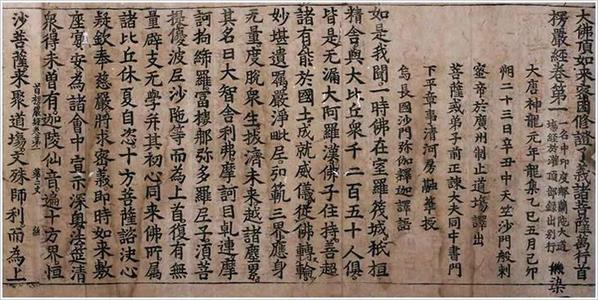 大佛頂如來密因修證了義諸菩薩萬行首
楞嚴經卷第一 一名中印度那蘭陁大道場經於灌頂部錄出別行
大唐神龍元年龍集乙巳五月己卯
朔二十三日辛丑中天竺沙門般剌
蜜帝於廣州制止道場譯出
菩薩戒弟子前正諫大夫同中書門
下平章事清河房融筆授
烏長國沙門弥伽釋迦譯語
如是我聞一時佛在室羅筏城祇桓
精舍與大比丘衆千二百五十人俱
皆是无漏大阿羅漢佛子住持善超
諸有能於國土成就威儀從佛轉輪
妙堪遺囑嚴淨毗尼弘範三界應身
无量度脫衆生拔濟未來越諸塵累
其名曰大智舍利弗摩訶目乹連摩
訶拘絺羅富樓那弥多羅尼子湏菩
提優波尼沙陁等而為上首復有無
量辟支无學并其初心同來佛所屬
諸比丘休夏自恣十方菩薩諮決心
疑欽奉慈嚴將求密義即時如來敷
座宴安為諸會中宣示深奧法筵清
衆得未曾有迦陵仙音遍十方界恒
首楞嚴經卷第一
沙菩薩來聚道場文殊師利而為上